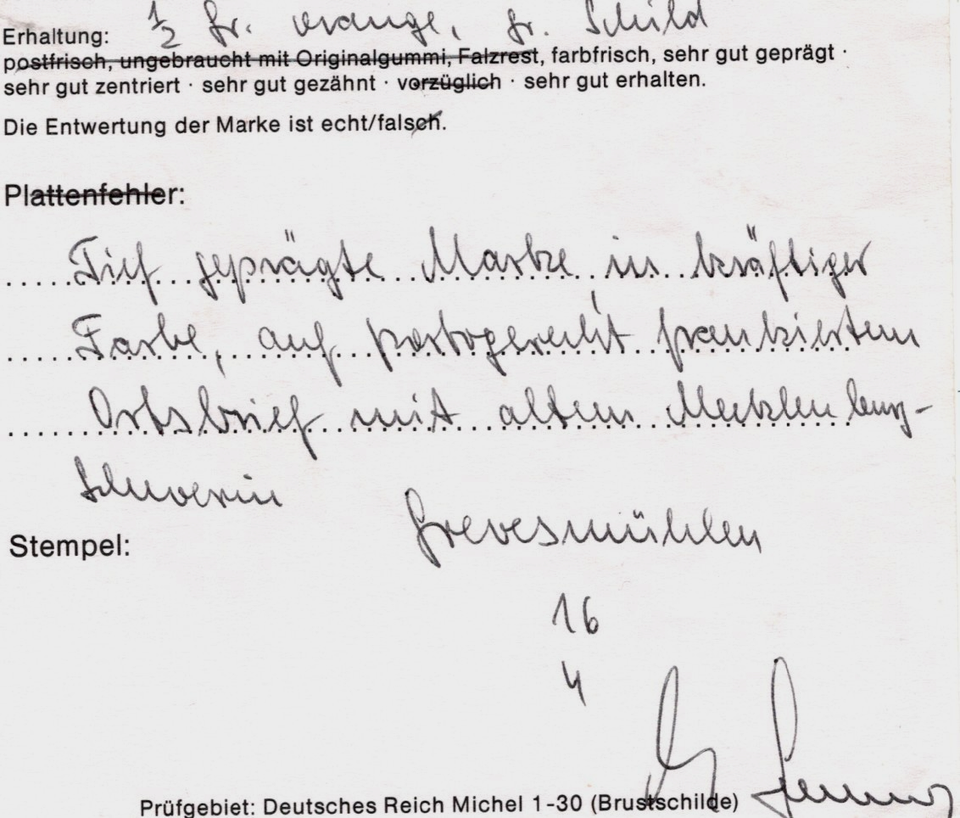 ½ Gr. orange, gr. Schild
Erhaltung:
postfrisch, ungebraucht mit Originalgummi, Falzrest, farbfrisch, sehr gut geprägt ·
sehr gut zentriert · sehr gut gezähnt · vorzüglich · sehr gut erhalten.
Die Entwertung der Marke ist echt/falsch.
Plattenfehler:
Tief geprägte Marke in kräftiger
Farbe, auf portogerecht frankiertem
Ortsbrief mit altem Mecklenburg-
Schwerin
Grevesmühlen
Stempel:
16
4
Prüfgebiet: Deutsches Reich Michel 1-30 (Brustschilde)